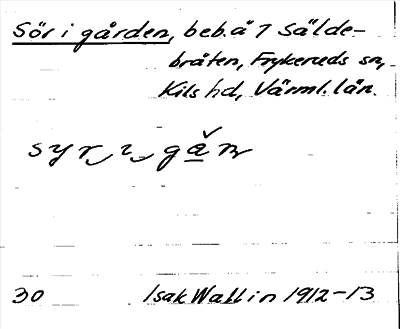 Sör i gården, beb. å 7 Sälde-
bråten, Frykeruds sn,
Kils hd, Värml. län.
30 Isak Wallin 1912-13